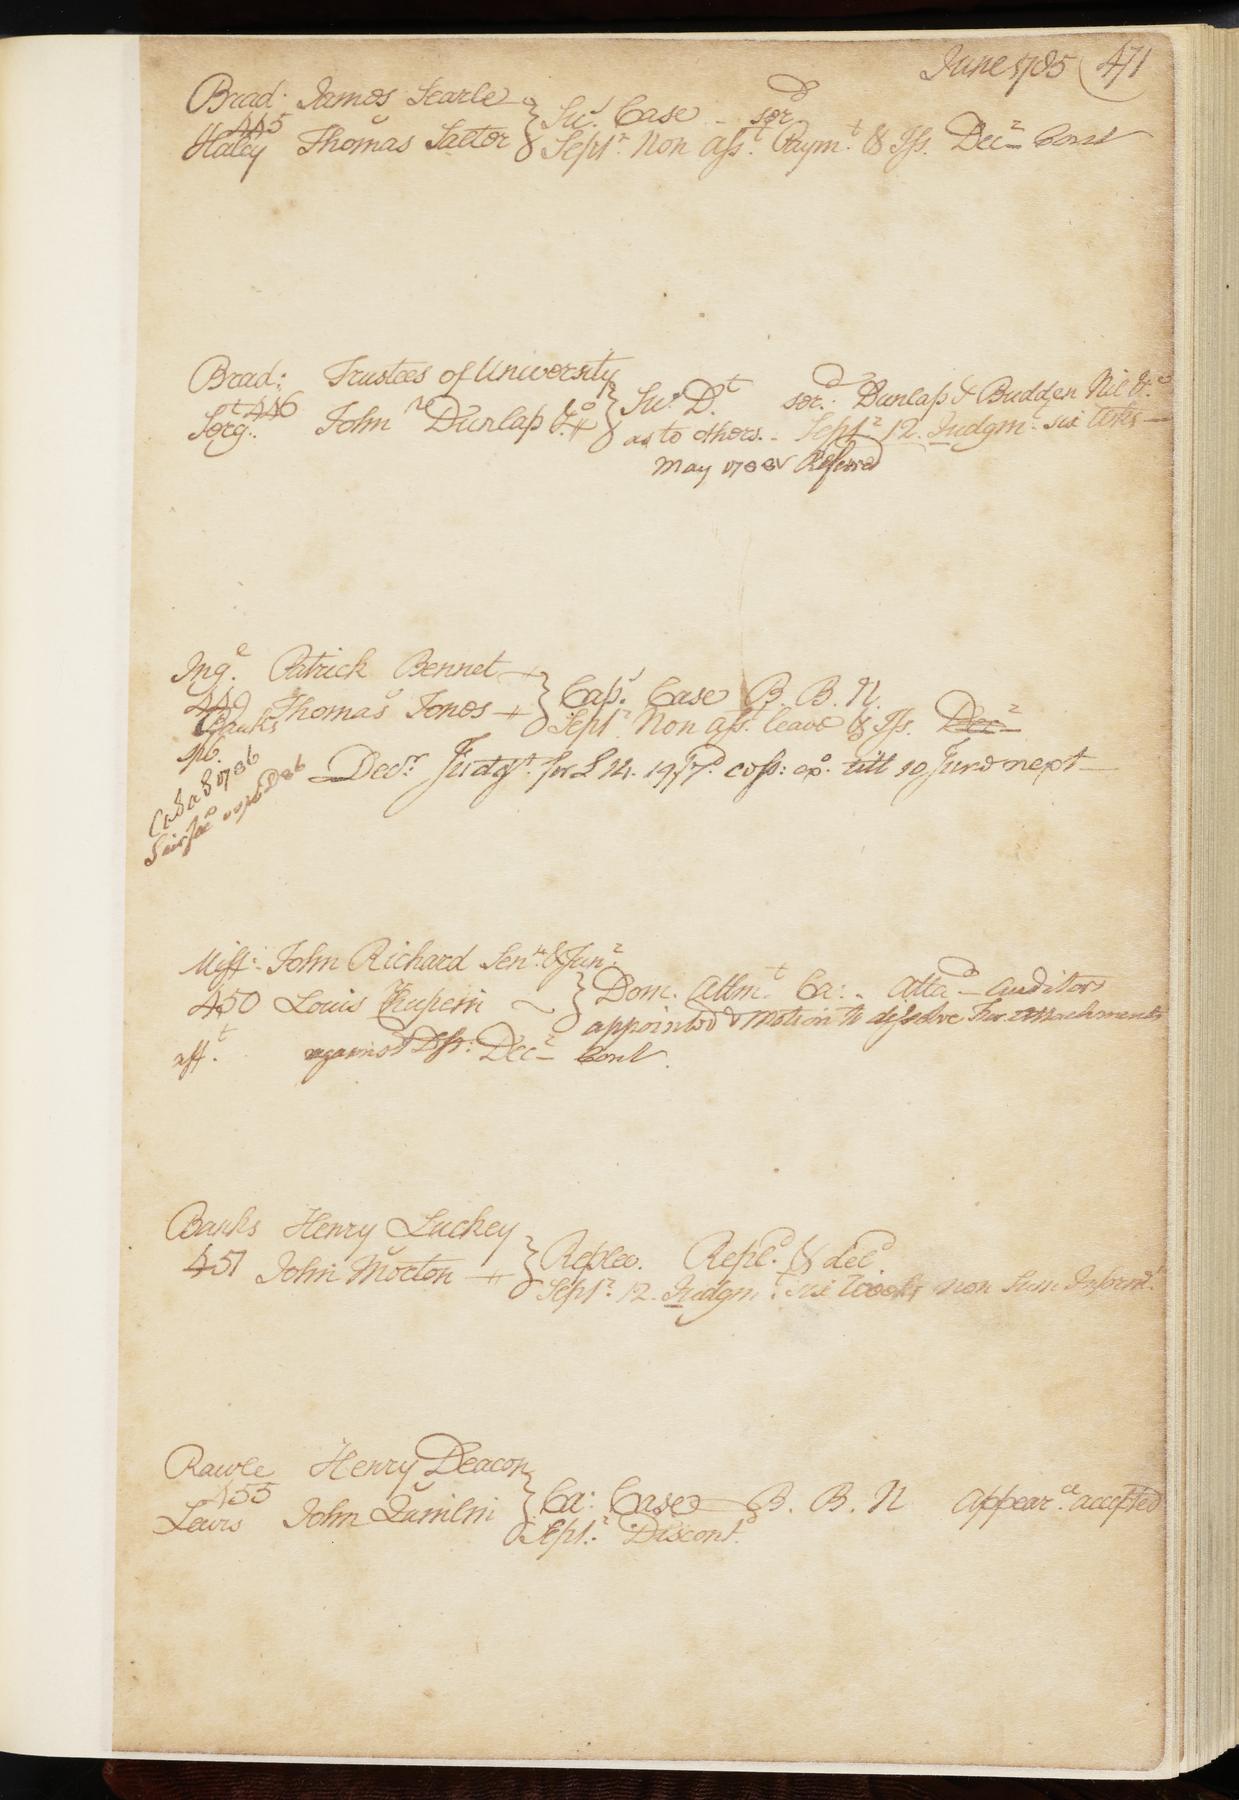 June 1785 (471
Brad: James Searle
445 Su.s Case ser.d
Haley Thomas Saltor Sept.r Non ass.t Paym.t & Iss. Dec.r Cont
Brad: Trustees of University
446 Su.s D.t ser.d Dunlap & Budden Nil &c
Serg.t John Dunlap &c as to others. Sept.r 12. Judgm.t nisi
May Referred
Ing.e Patrick Bennet
Cap.s Case B. B. N.
Banks Thomas Jones Sept.r Non ass.t leave & Iss. Dec.r
Dec.r Judg.t for £ coss: ex.o till 10 June next
Ca Sa S 1786
Miff: John Richard Sen.r & Jun.r
450 Louis Dom. Attm.t Ca: Atta.d Auditors
appointed & Motion to dissolve the attachments
against Dec.r Cont.
Banks Henry Luckey
451 John Morton Replev. Repl.d & del.d
Sept.r 12. Judgm.t nisi non Sum Inform.s
Rawle Henry Deacon
455 Ca: Case B. B. N Appear.ce accepted
Lewis John Sept.r Discont.d